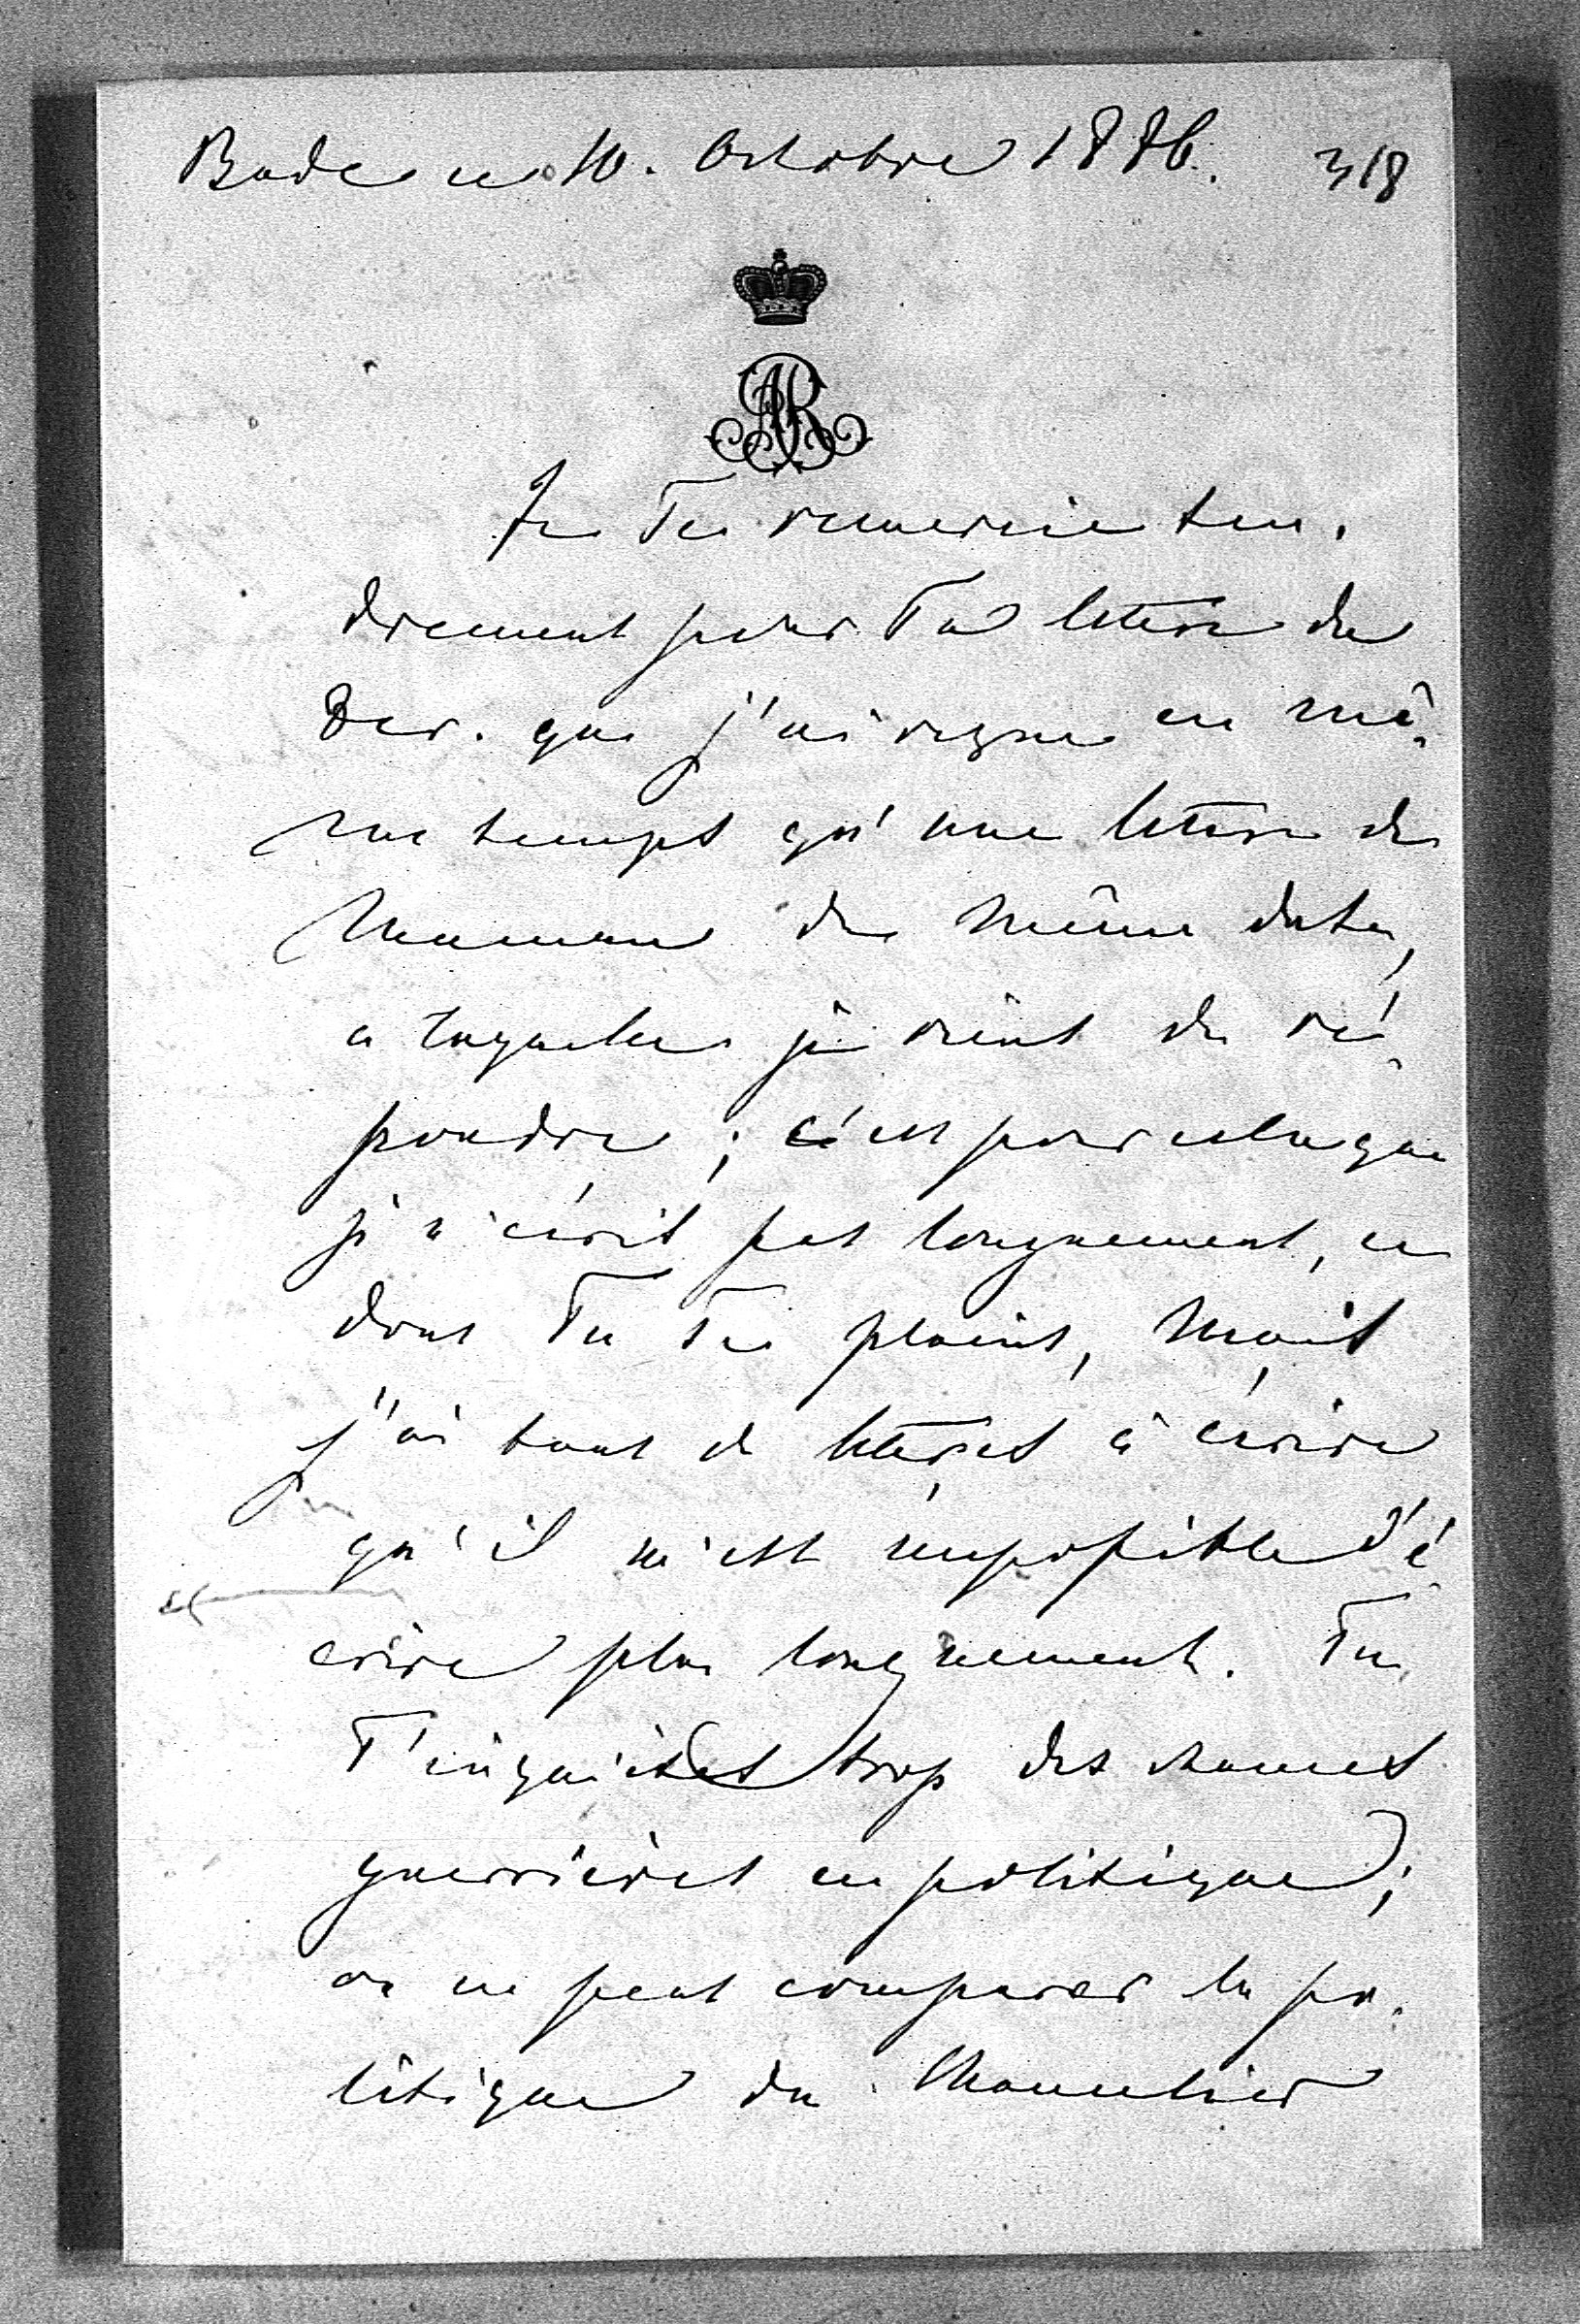 Bade ce 10. Octobre 1886. 318
AR
Je Te remercie ten.
drement pour Ta lettre du
que j'ai reçue en mê.
me temps qu'une lettre de
Maman de même date,
a laquelle je viens de ré.
pondre; c'est pour cela que
je n'écris pas longuement, ce
dont Tu Te plains, mais
j'ai tant de lettres à écrire
qu'il m'est impossible d'é.
crire plus longuement. Tu
T'inquiètes trop des
guerrières en politique;
on ne peut comparer la po.
litique du Chancelier